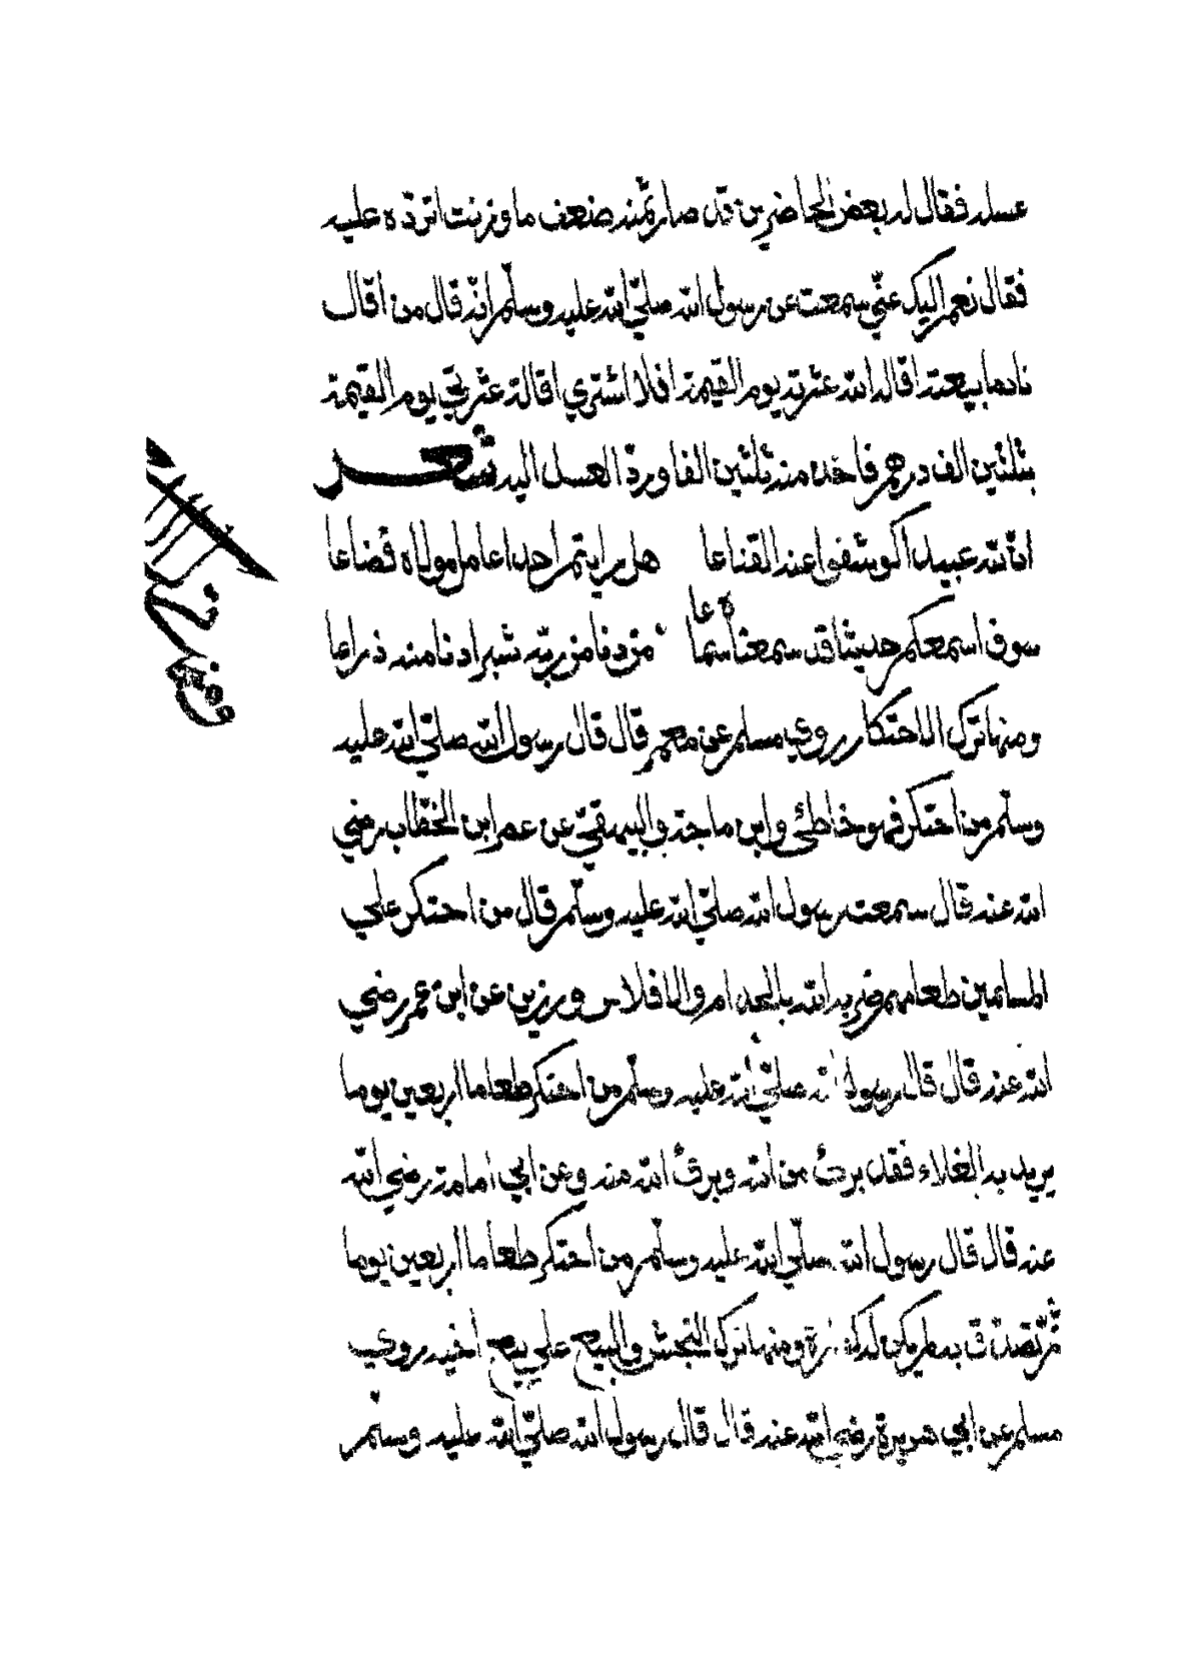 عسله فقال له بعض الحاضرين قد صار ثمنه ضعف ما وزنت اتردّه عليه
فقال نعم اليك عنّي سمعت عن رسول الله صلّي الله عليه وسلّم انّه قال من أقال
نادما بيعته اقاله الله عثرته يوم القيمة افلا اشتري اقالة عثرتي يوم القيمة
بثلثين الف درهم فاخذ منه ثلثين الفا وردّ العسل اليه شعر
انّ لله عبيدا كوشفوا عند القناعا هل رايتم احدا عامل مولاه فضاعا
سوف اسمعكم حديثا قد سمعناه سماعا من دنا من ربّه شبرا دنا منه ذراعا
ومنها ترك الاحتكار روي مسلم عن معمر قال قال رسول الله صلّي الله عليه
وسلّم من احتكر فهو خاطئ وابن ماجة والبيهقيّ عن عمر ابن الخطّاب رضي
الله عنه قال سمعت رسول الله صلّي الله عليه وسلّم قال من احتكر علي
المسلمين طعامهم ضربه الله بالجذام والافلاس ورزين عن ابن عمر رضي
الله عنه قال قال رسول الله صلّي الله عليه وسلّم من احتكر طعاما اربعين يوما
يريد به الغلاء فقد برئ من الله وبرئ الله منه وعن ابي أمامة رضي الله
عنه قال قال رسول الله صلّي الله عليه وسلّم من احتكر طعاما اربعين يوما
ثمّ تصدّق به لم يكن له كفارة ومنها ترك النجش والبيع علي بيع أخيه روي
مسلم عن ابي هريرة رضي الله عنه قال قال رسول الله صلّي الله عليه وسلّم